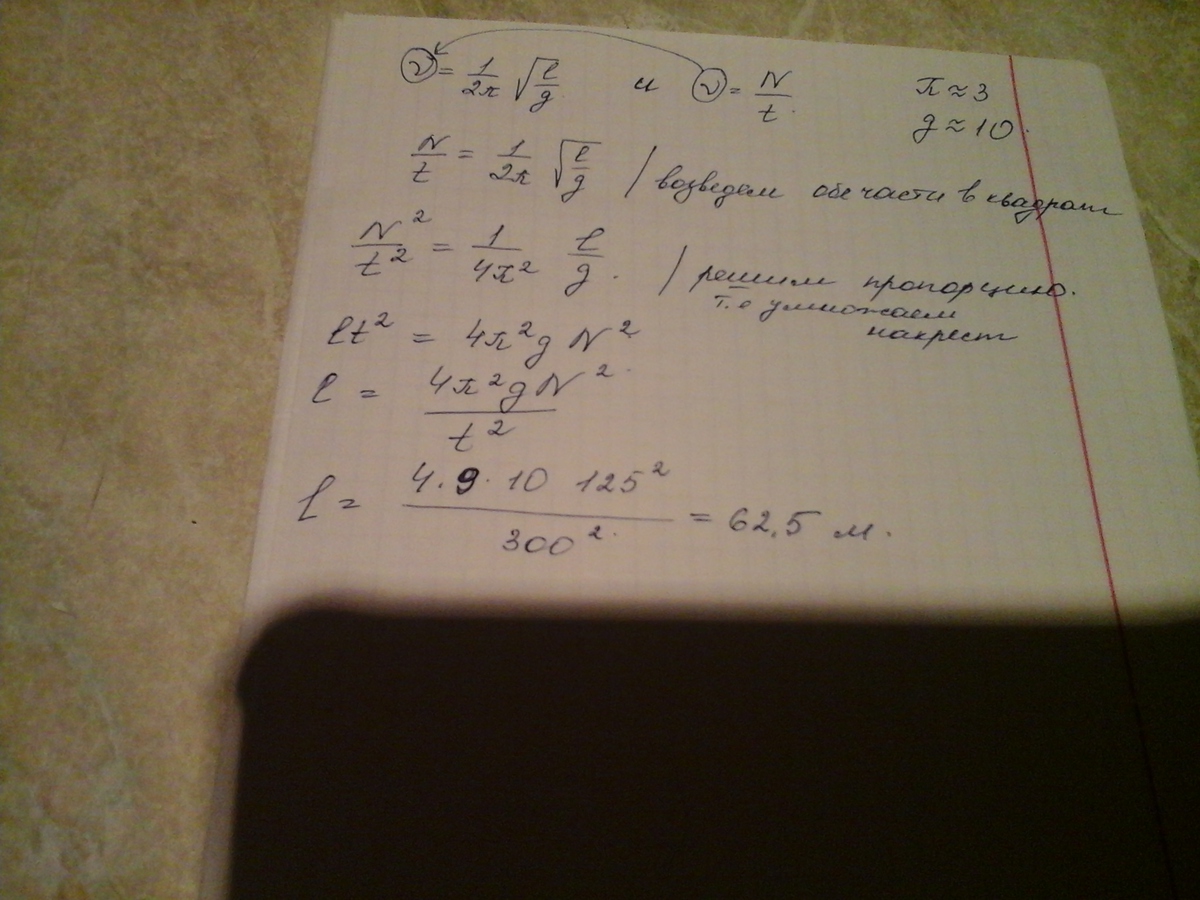 ν = 1/2π √(l/g) и ν = N/t. π ≈ 3
g ≈ 10.
N/t = 1/2π √(l/g) / возведем обе части в квадрат
N²/t² = 1/4π² l/g. / решим пропорцию.
т.е умножаем
накрест
lt² = 4π²g N²
l = 4π²gN²/t²
l = 4·9·10 125²/300² = 62,5 м.